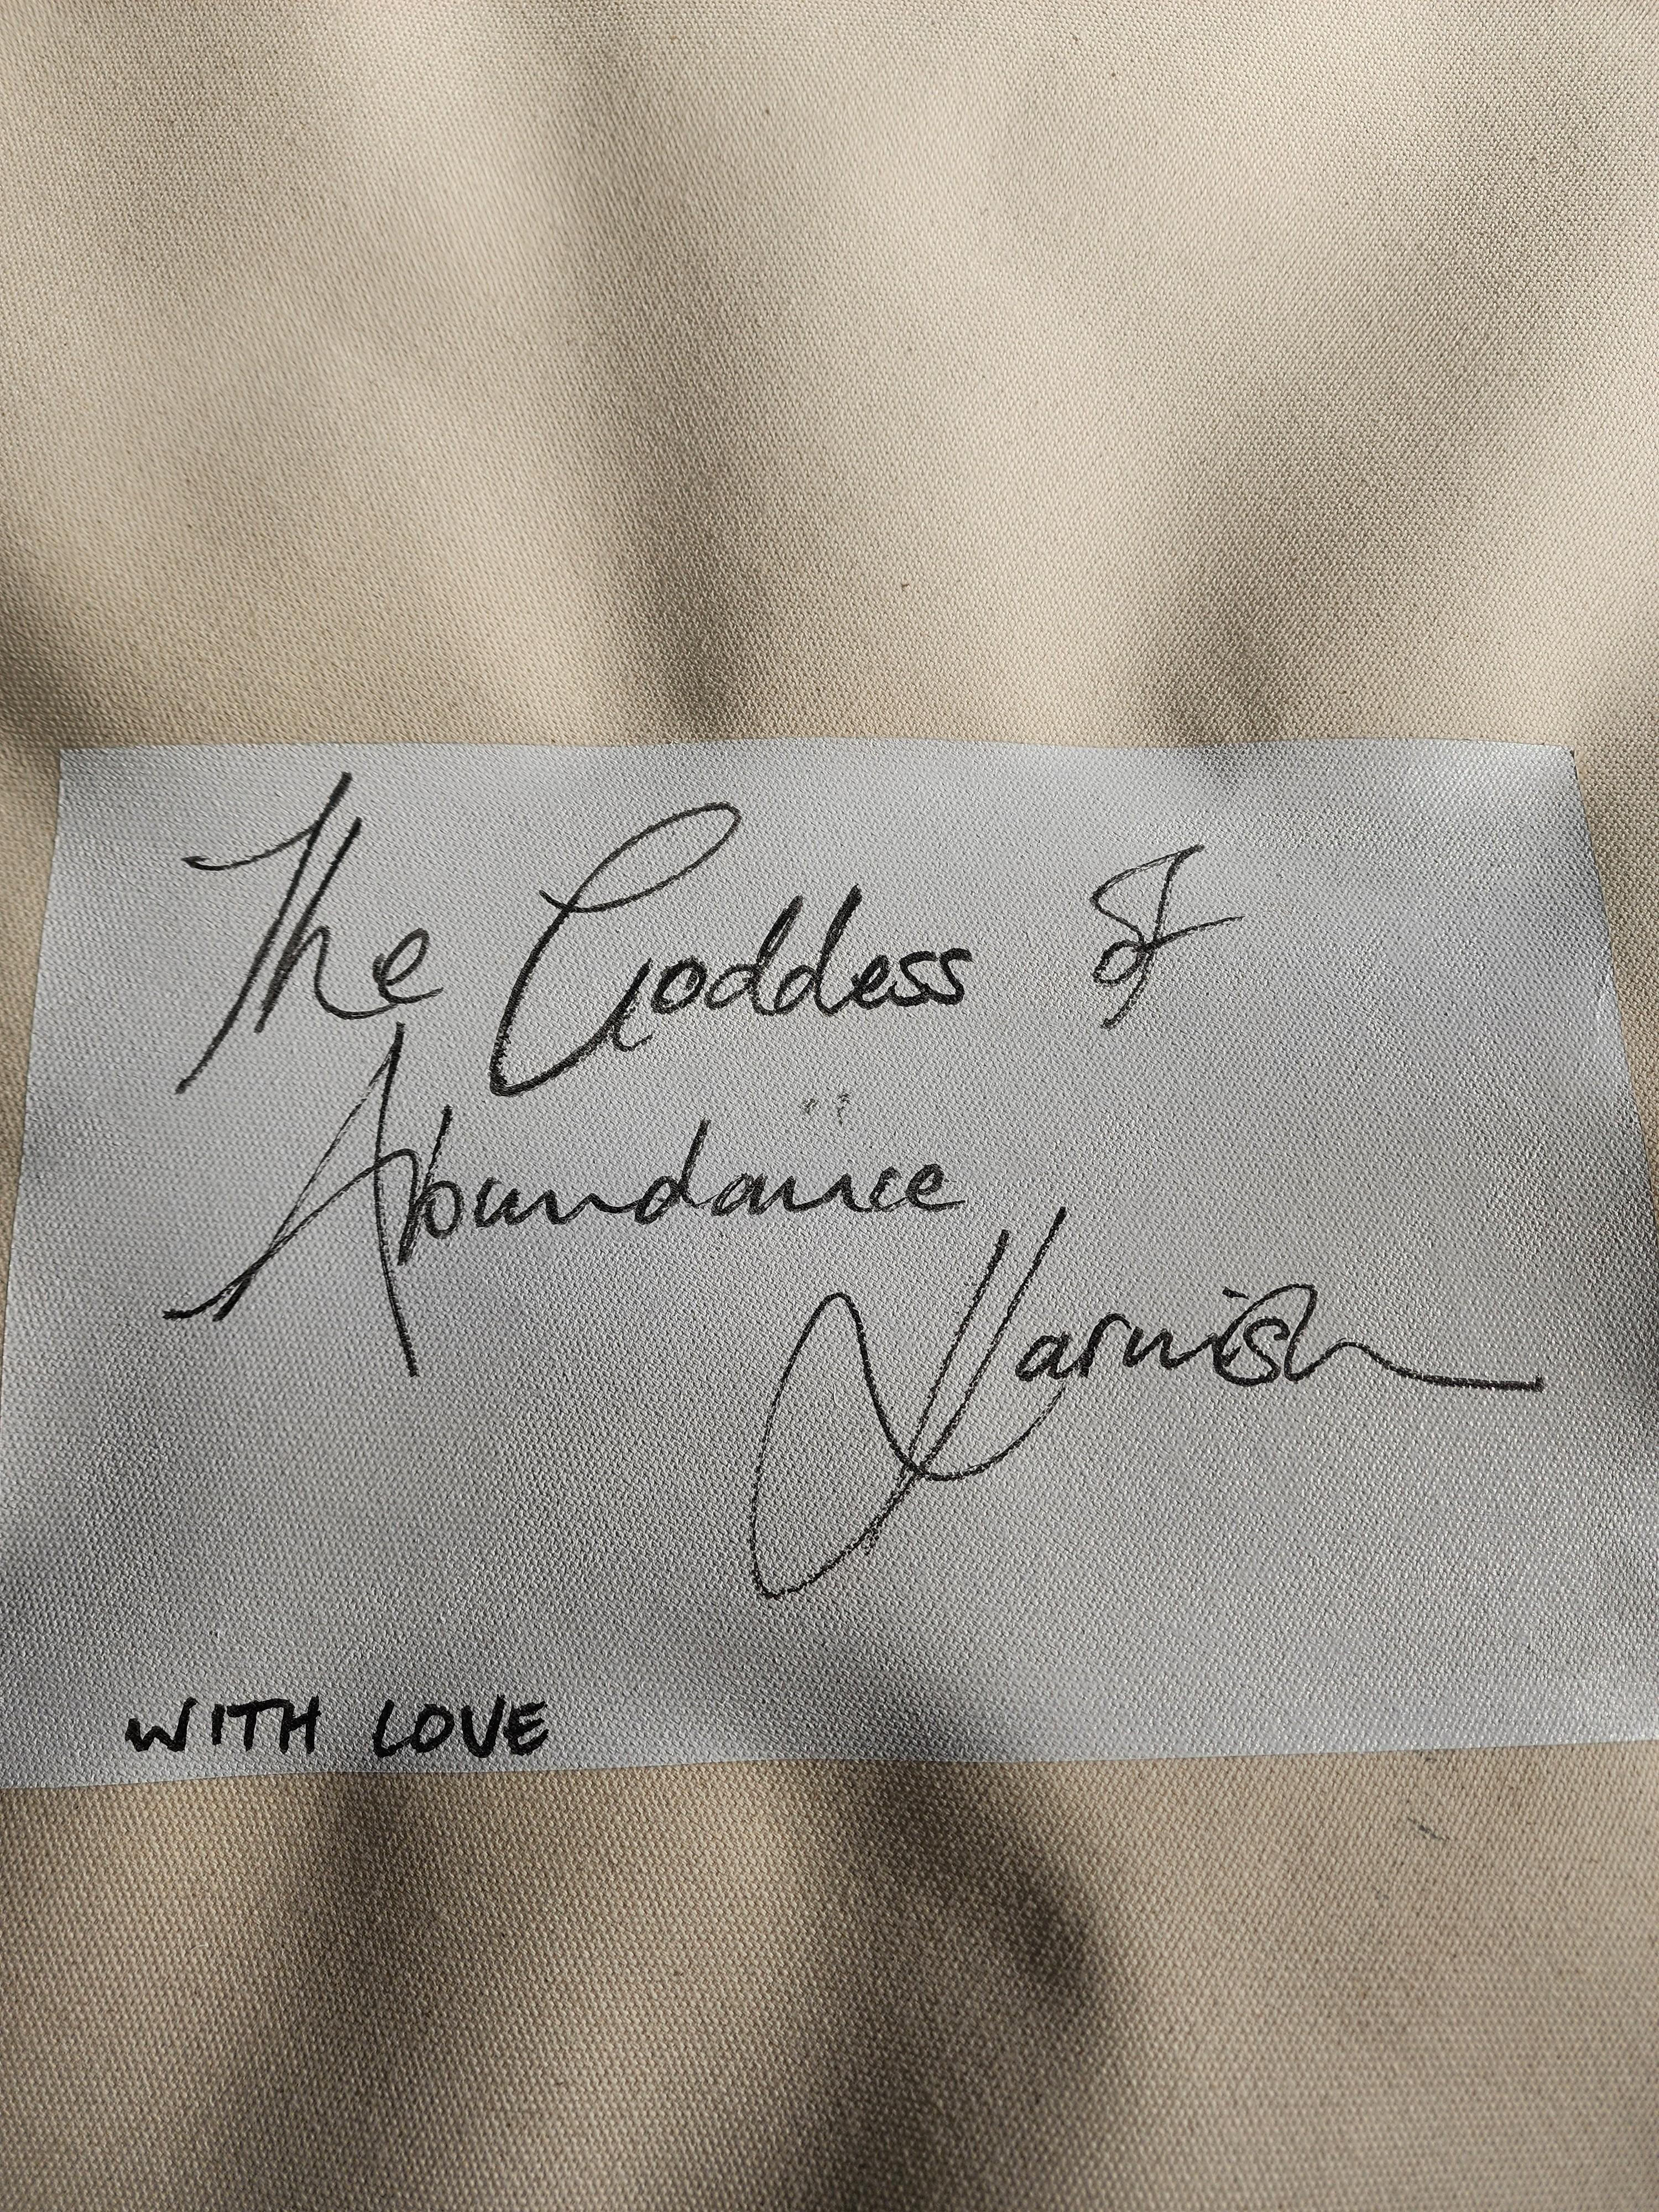 The Goddess of
Abundance
Varnish
WITH LOVE